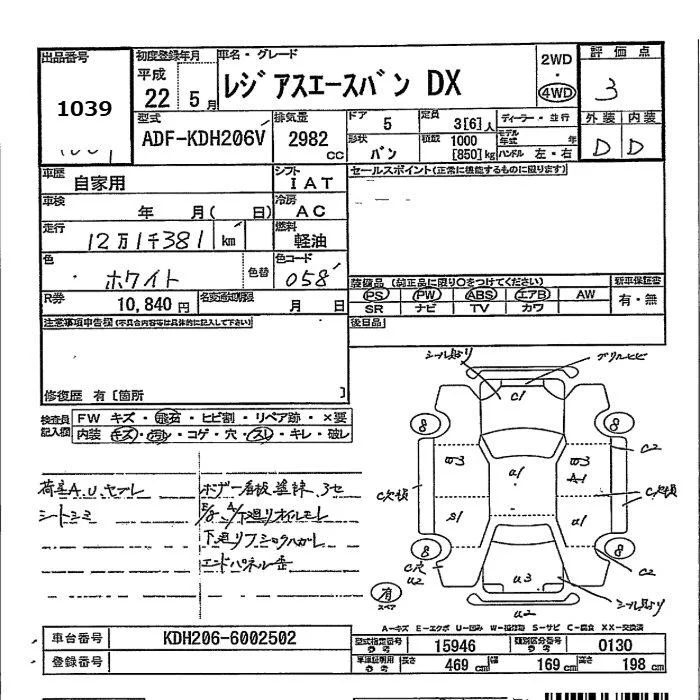 出品番号 初度登録年月 車名・グレード 2WD 評価点
1039 平成 22 5月 レジアスエースバン DX 4WD 3
型式 排気量 ドア 定員 ディーラー・並行 外装 内装
ADF-KDH206V 2982 CC 5 3[6]人 モデル年式 年 D D
形状 積載
バン 1000 [850]kg ハンドル 左・右
車歴 自家用 シフト IAT セールスポイント(正常に機能するものに限ります)
車検 年 月( 日) 冷房 AC
走行 12万1千381 km 燃料 軽油
色 ホワイト 色替 色コード 058
装備品(純正品に限り○をつけてください) 新車保証書
R券 10,840円 名変通知期限 月 日
PS PW ABS エアB AW 有・無
SR ナビ TV カワ
注意事項申告欄(不具合内容等は具体的に記入して下さい) 後日品
修復歴 有[箇所 ]
検査員記入欄 FW キズ・飛石・ヒビ割・リペア跡・×要
内装 キズ・汚れ・コゲ・穴・スレ・キレ・破レ
シール貼り グリルヒビ
C1
8 8
C2
A1
S1 U1 U1
8 8
C穴 U2 C2
U3
シール貼り
有 スペア U2
シートシミ 下廻りオイルモレ
エンドパネル歪
A-キズ E-エクボ U-凹み W-補修跡 S-サビ C-腐食 XX-交換済
車台番号 KDH206-6002502 型式指定番号 参考 15946 類別区分番号 参考 0130
登録番号 車庫証明用 参考 長さ 469 cm 幅 169 cm 高さ 198 cm